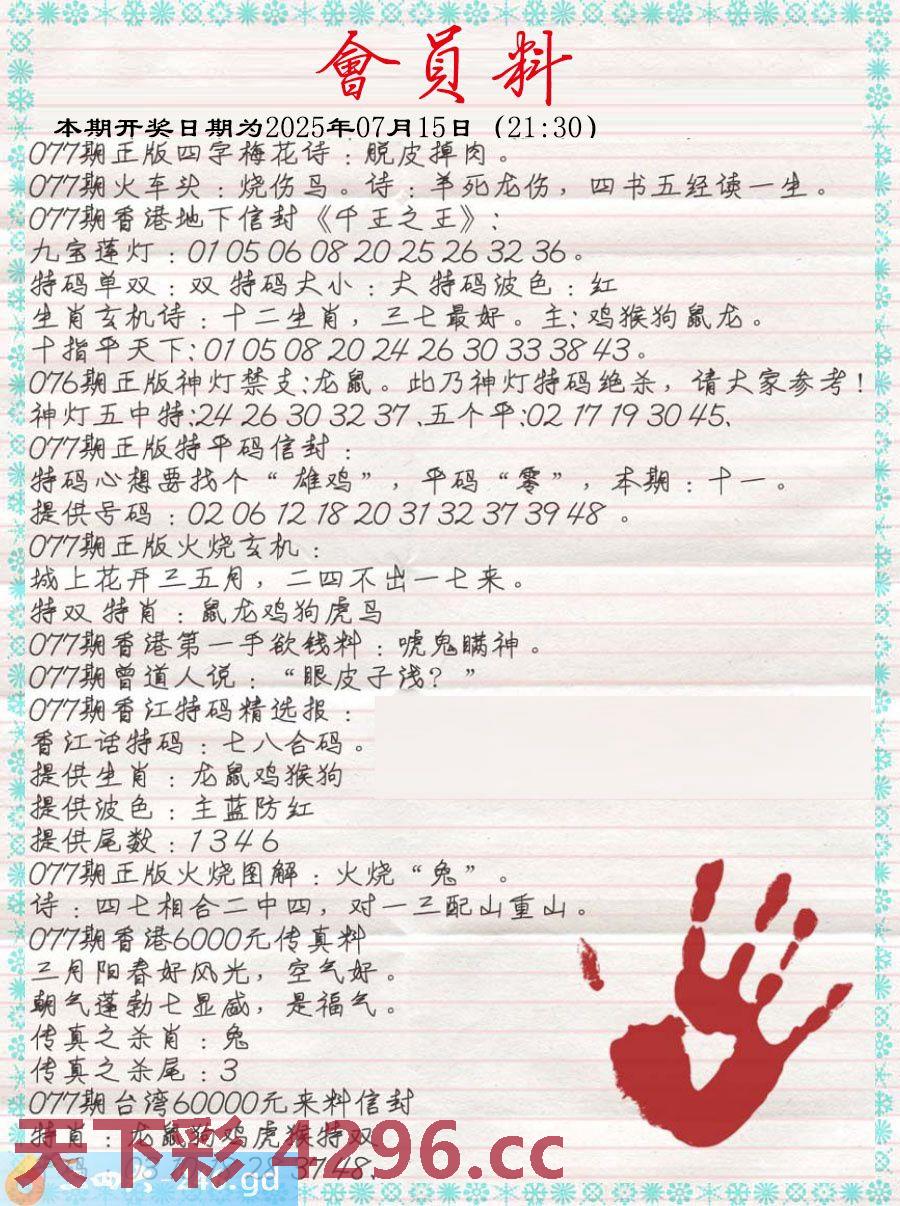 會員料
本期开奖日期为2025年07月15日（21:30）
077期正版四字梅花诗：脱皮掉肉。
077期火车头：烧伤鸟。诗：羊死龙伤，四书五经读一生。
077期香港地下信封《千王之王》：
九宝莲灯：01 05 06 08 20 25 26 32 36。
特码单双：双 特码大小：大 特码波色：红
生肖玄机诗：十二生肖，三七最好。主：鸡猴狗鼠龙。
十指平天下：01 05 08 20 24 26 30 33 38 43。
076期正版神灯禁支：龙鼠。此乃神灯特码绝杀，请大家参考！
神灯五中特：24 26 30 32 37、五个平：02 17 19 30 45、
077期正版特平码信封：
特码心想要找个“雄鸡”，平码“零”，本期：十一。
提供号码：02 06 12 18 20 31 32 37 39 48 。
077期正版火烧玄机：
城上花开三五月，二四不出一七来。
特双 特肖：鼠龙鸡狗虎马
077期香港第一手欲钱料：唬鬼瞒神。
077期曾道人说：“眼皮子浅？”
077期香江特码精选报：
香江话特码：七八合码。
提供生肖：龙鼠鸡猴狗
提供波色：主蓝防红
提供尾数：1 3 4 6
077期正版火烧图解：火烧“兔”。
诗：四七相合二中四，对一三配山重山。
077期香港6000元传真料
三月阳春好风光，空气好。
朝气蓬勃七显威，是福气。
传真之杀肖：兔
传真之杀尾：3
077期台湾60000元来料信封
特肖：龙鼠狗鸡虎猴特双
天下彩4296.cc
37 48、
.gd